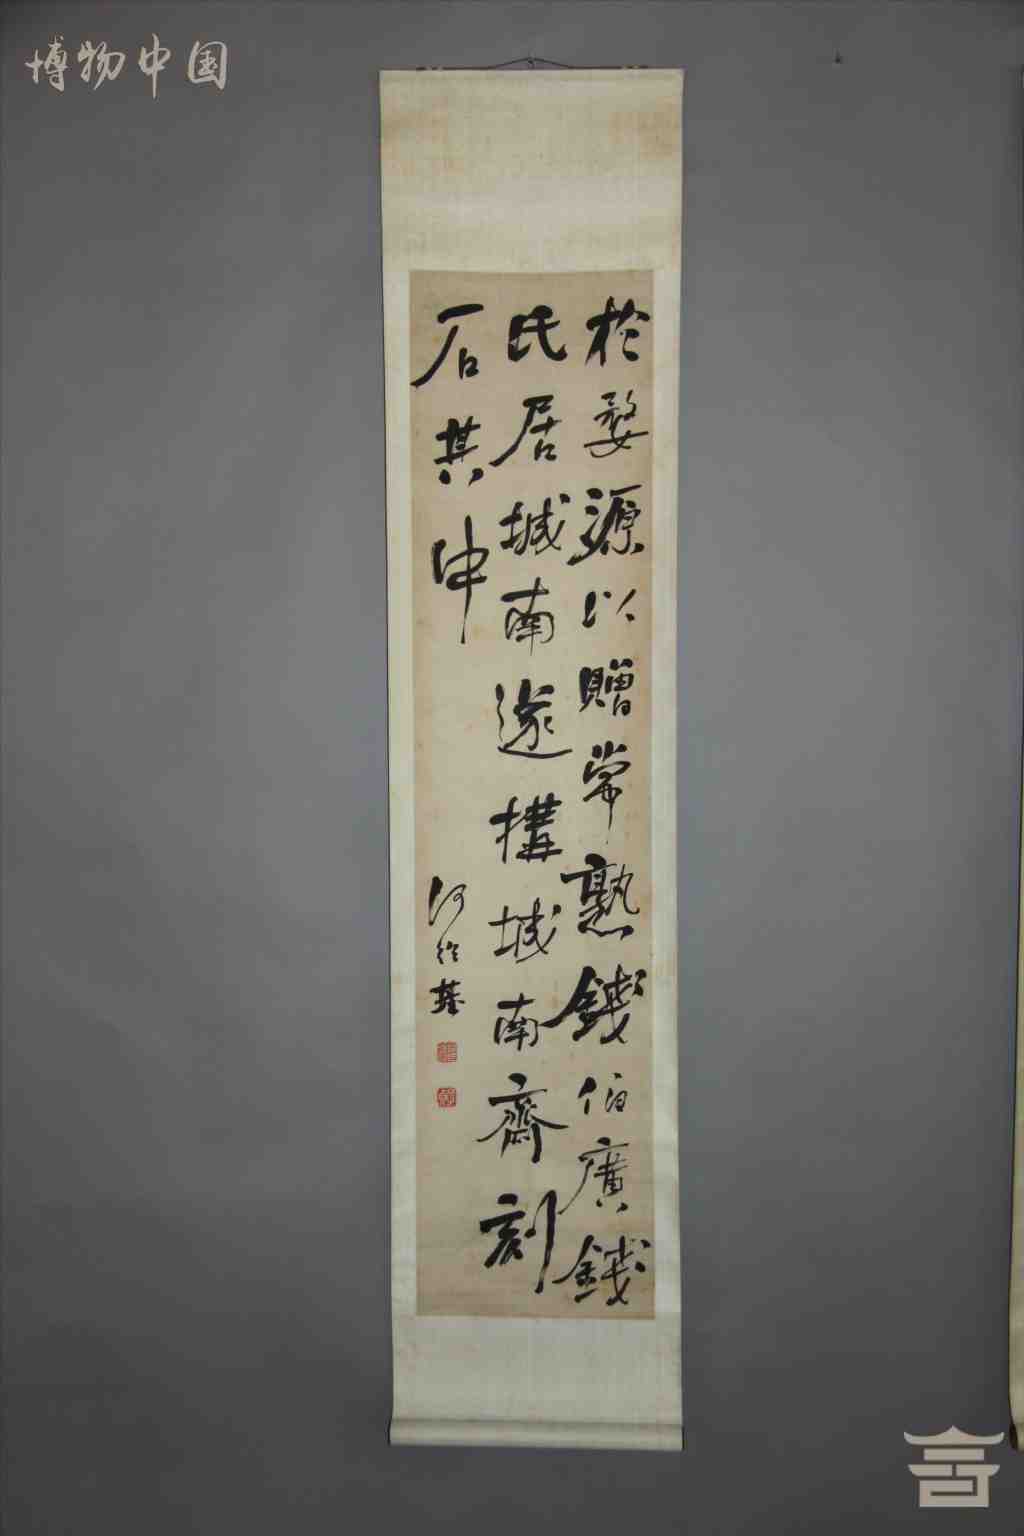 博物中国
於婺源以贈常熟錢伯廣錢
氏居城南遂構城南齋刻
石其中
何紹基